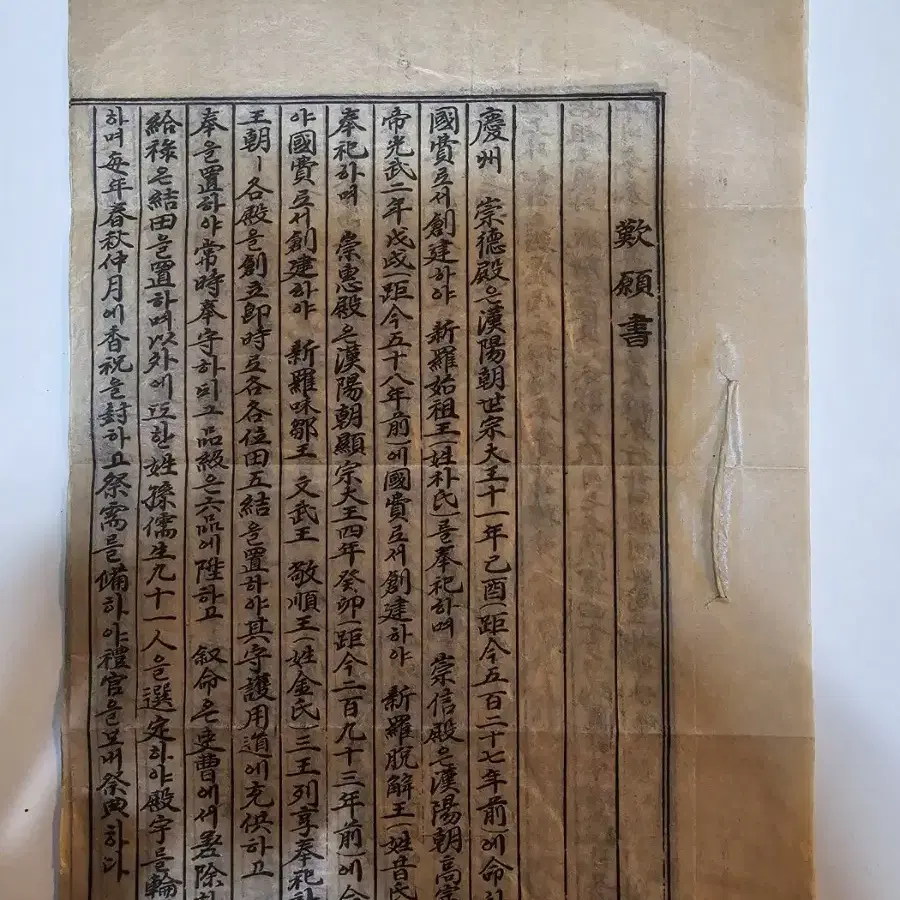 歎願書
慶州 崇德殿은漢陽朝世宗大王十一年乙酉(距今五百二十七年前)에命하
國費로서創建하야 新羅始祖王(姓朴氏)를奉祀하며 崇信殿은漢陽朝高宗
帝光武二年戊戌(距今五十八年前)에國費로서創建하야 新羅脫解王(姓昔氏
奉祀하며 崇惠殿은漢陽朝顯宗大王四年癸卯(距今二百九十三年前)에命
야國費로서創建하야 新羅味鄒王 文武王 敬順王(姓金氏)三王列享奉祀하
王朝ㅣ各殿을創立即時로各各位田五結을置하야其守護用道에充供하고
奉을置하야常時奉守하되그品級은六品에陞하고 叙命은吏曹에서 除하
給祿은結田을置하며以外에또한姓孫儒生九十一人을選定하야殿宇를輪
하며每年春秋仲月에香祝을封하고祭需를備하야禮官을보내祭典하다